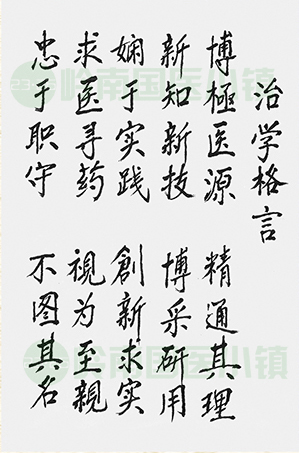 治学格言
博極医源 精通其理
新知新技 博采研用
娴于实践 創新求实
求医寻药 視为至親
忠于职守 不图其名
岭南国医小镇
岭南国医小镇